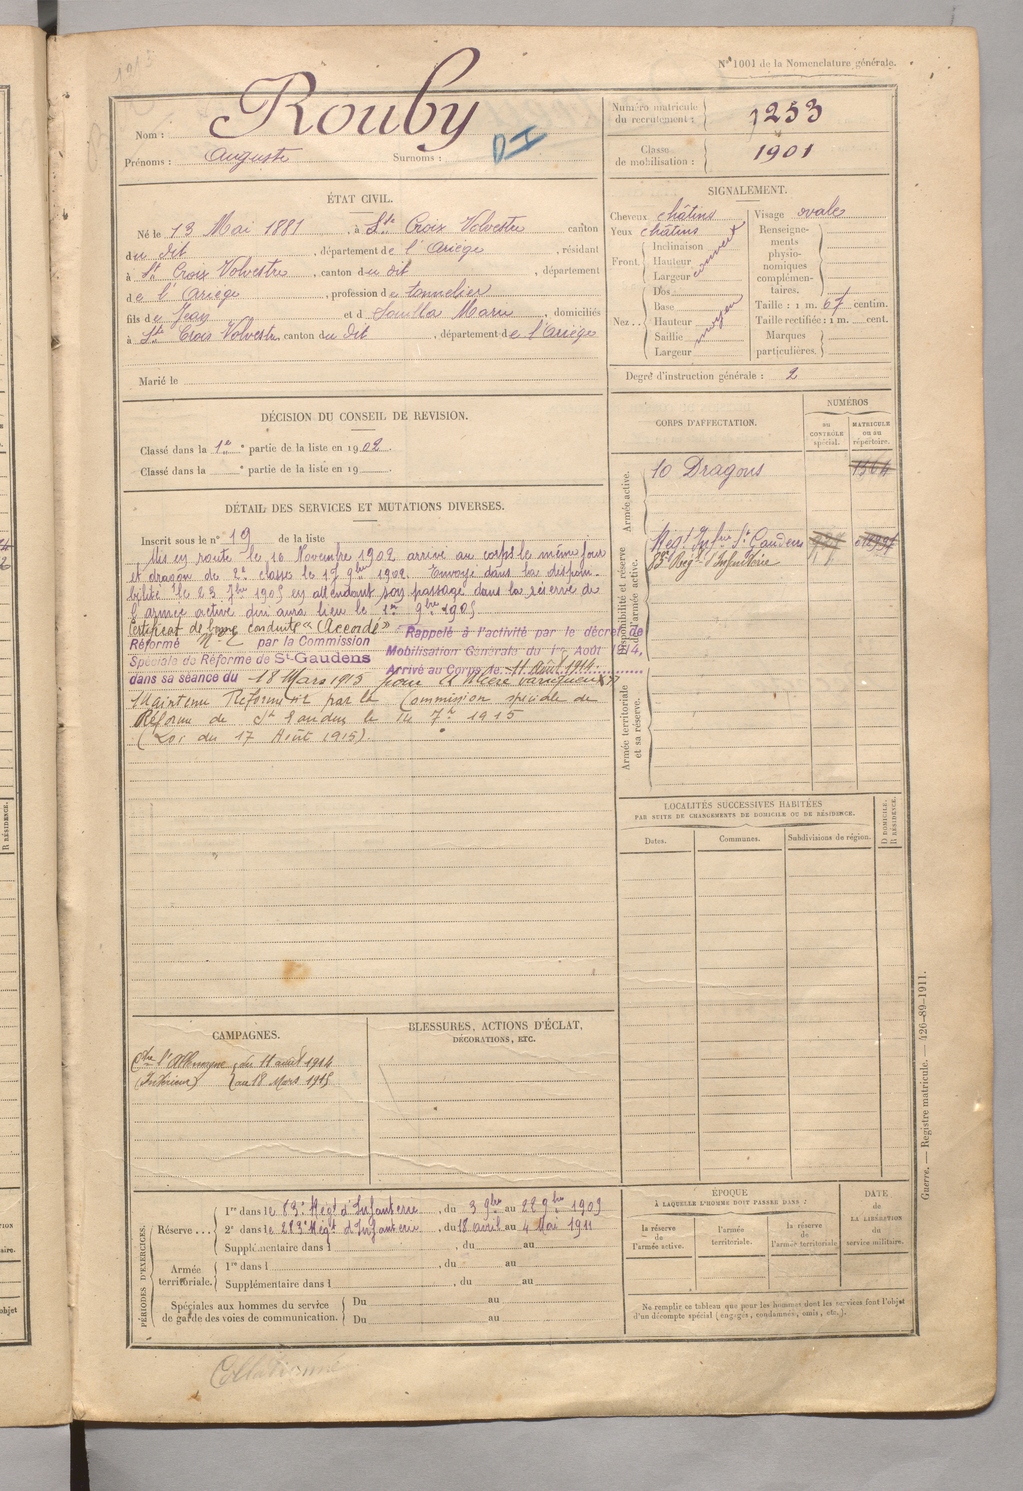 1013
N° 1001 de la Nomenclature générale.
Nom : Rouby
Prénoms : Auguste Surnoms :
DI
Numéro matricule du recrutement : 1253
Classe de mobilisation : 1901
ÉTAT CIVIL.
Né le 13 Mai 1881, à Ste Croix Volvestre canton
du dit, département de l'Ariège, résidant
à Ste Croix Volvestre, canton du dit, département
de l'Ariège, profession de tonnelier
fils de Jean et d Marie, domiciliés
à Ste Croix Volvestre, canton du dit, département de l'Ariège
Marié le
SIGNALEMENT.
Cheveux châtins
Yeux châtins
Front. Inclinaison
Hauteur
Largeur
couvert
Nez.. Dos
Base
Hauteur
Saillie
Largeur
moyen
Visage ovale
Renseignements physionomiques complémentaires.
Taille : 1 m. 67 centim.
Taille rectifiée : 1 m. cent.
Marques particulières.
Degré d'instruction générale : 2
DÉCISION DU CONSEIL DE REVISION.
Classé dans la 1re partie de la liste en 1902.
Classé dans la e partie de la liste en 19
CORPS D'AFFECTATION.
NUMÉROS
au CONTRÔLE spécial.
MATRICULE ou au répertoire.
Armée active.
10 Dragons 1364
Disponibilité et réserve de l'armée active.
Régt Infrie St Gaudens
83e Régt d'Infanterie
Armée territoriale et sa réserve.
DÉTAIL DES SERVICES ET MUTATIONS DIVERSES.
Inscrit sous le n° 19 de la liste
Mis en route le 16 Novembre 1902 arrivé au corps le même jour
et dragon de 2e classe le 17 9bre 1902. Envoyé dans la disponi-
bilité le 23 7bre 1905 en attendant son passage dans la réserve de
l'armée active qui aura lieu le 1er 9bre 1905
Certificat de bonne conduite "Accordé" Rappelé à l'activité par le décret de
Réformé n° 2 par la Commission Mobilisation Générale du 1er Août 1914,
Spéciale de Réforme de St-Gaudens Arrivé au Corps le 11 Août 1914
dans sa séance du 18 Mars 1915 pour
Maintenu Réformé par la Commission spéciale de
Réforme de St Gaudens le 7bre 1915
(Loi du 17 Août 1915).
LOCALITÉS SUCCESSIVES HABITÉES
PAR SUITE DE CHANGEMENTS DE DOMICILE OU DE RÉSIDENCE.
Dates. Communes. Subdivisions de région.
D DOMICILE.
R RÉSIDENCE.
CAMPAGNES.
Ctre l'Allemagne du 11 août 1914
(Intérieur) au 18 Mars 1915
BLESSURES, ACTIONS D'ÉCLAT, DÉCORATIONS, ETC.
PÉRIODES D'EXERCICES.
Réserve... 1re dans le 83e Régt d'Infanterie, du 3 9bre au 28 9bre 1909
2e dans le 283e Régt d'Infanterie, du 18 avril au 4 Mai 1911
Supplémentaire dans l , du au
Armée territoriale. 1re dans l , du au
Supplémentaire dans l , du au
Spéciales aux hommes du service de garde des voies de communication. Du au
Du au
ÉPOQUE
À LAQUELLE L'HOMME DOIT PASSER DANS :
la réserve de l'armée active.
l'armée territoriale.
la réserve de l'armée territoriale.
DATE DE LA LIBÉRATION du service militaire.
Ne remplir ce tableau que pour les hommes dont les services font l'objet
d'un décompte spécial (engagés, condamnés, omis, etc.).
Guerre. — Registre matricule. — 426-89-1911.
Collationné
R RÉSIDENCE.